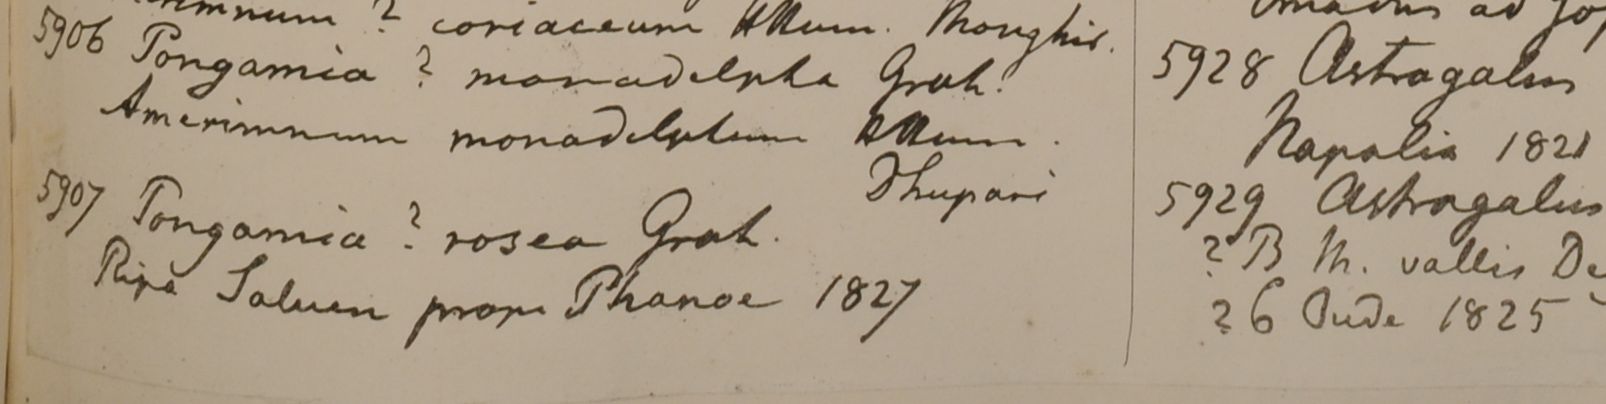 ? coriaceum HHam. Monghir.
5906 Pongamia ? monadelpha Grah.
Amerimnum monadelphum HHam.
Dhupari
5907 Pongamia ? rosea Grah.
Ripa Saluen prope Phanoe 1827
5928 Astragalus
Napalia 1821
5929 Astragalus
? B M. vallis De
? 6 Oude 1825